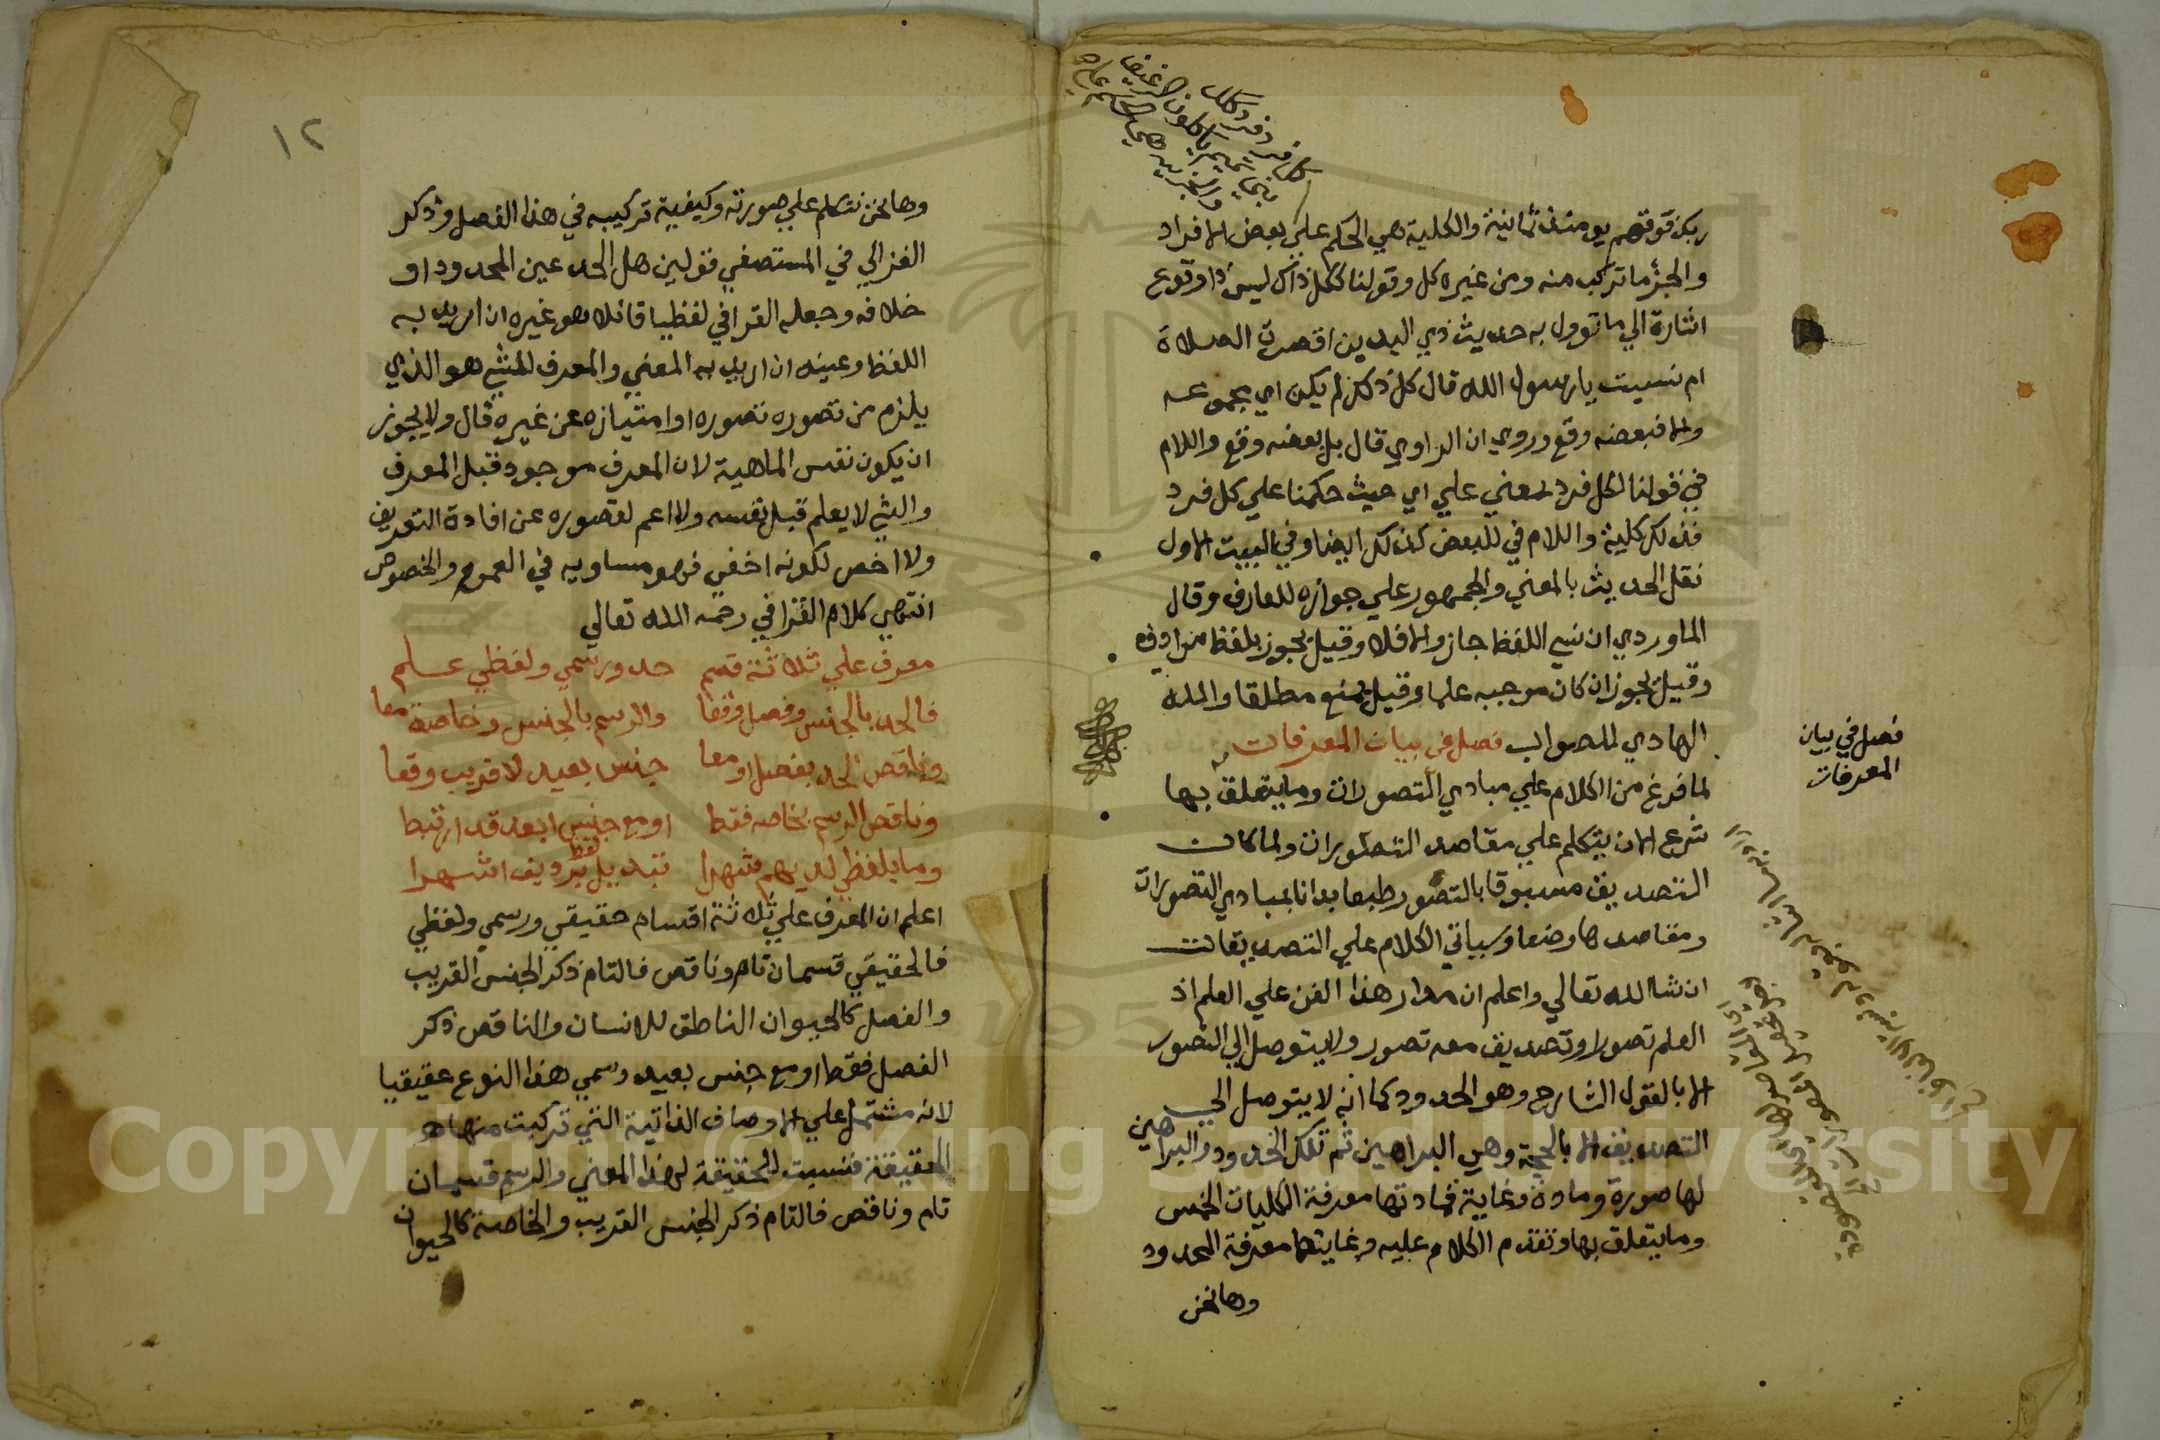 ربك فوقهم يومئذ ثمانية والكلية هي الحكم علي بعض الافراد
والجزء ما تركب منه ومن غيره كل وقولنا ككل ذاك ليس ذا وقوع
اشارة الي ما توول به حديث ذي اليدين اقصرت الصلاة
ام نسيت يا رسول الله قال كل ذلك لم يكن اي مجموعه
والا فبعضه وقع وروي ان الراوي قال بل بعضه وقع واللام
في قولنا لكل فرد بمعني علي اي حيث حكمنا علي كل فرد
فذلك كلية واللام في للبعض كذلك ايضا وفي البيت الاول
نقل الحديث بالمعني والجمهور علي جوازه للعارف وقال
الماوردي ان نسي اللفظ جاز والا فلا وقيل يجوز بلفظ مرادف
وقيل يجوز ان كان موجبه علما وقيل يمنع مطلقا والله
الهادي للصواب فصل في بيان المعرفات
لما فرغ من الكلام علي مبادي التصورات وما يتعلق بها
شرع الان يتكلم علي مقاصد التصورات ولما كان
التصديق مسبوقا بالتصور طبعا بدانا بمبادي التصورات
ومقاصدها وضعا وسياتي الكلام علي التصديقات
ان شا الله تعالي واعلم ان مدار هذا الفن علي العلم اذ
العلم تصور او تصديق معه تصور ولا يتوصل الي التصور
الا بالقول الشارح وهو الحدود كما انه لا يتوصل الي
التصديق الا بالحجة وهي البراهين ثم تلك الحدود والبراهين
لها صورة ومادة وغاية فمادتها معرفة الكليات الخمس
وما يتعلق بها وتقدم الكلام عليه وغايتها معرفة المحدود
وها نحن
فصل في بيان
المعرفات
١٢
وها نحن نتكلم علي صورته وكيفية تركيبه في هذا الفصل وذكر
الغزالي في المستصفي قولين هل الحد عين المحدود او
خلافه وجعله القرافي لفظيا قائلا هو غيره ان اريد به
اللفظ وعينه ان اريد به المعني والمعرف للشي هو الذي
يلزم من تصوره تصوره او امتيازه عن غيره قال ولا يجوز
ان يكون نفس الماهية لان المعرف موجود قبل المعرف
والشي لا يعلم قبل نفسه ولا اعم لقصوره عن افادة التعريف
ولا اخص لكونه اخفي فهو مساويه في العموم والخصوص
انتهي كلام القرافي رحمه الله تعالي
معرف علي ثلاثة قسم حد ورسمي ولفظي علم
فالحد بالجنس وفصل وقعا والرسم بالجنس وخاصة معا
وناقص الحد بفصل او معا جنس بعيد لا قريب وقعا
وناقص الرسم بخاصة فقط او مع جنس ابعد قد ارتبط
وما بلفظي لديهم شهرا تبديل لفظ برديف اشهرا
اعلم ان المعرف علي ثلاثة اقسام حقيقي ورسمي ولفظي
فالحقيقي قسمان تام وناقص فالتام ذكر الجنس القريب
والفصل كالحيوان الناطق للانسان والناقص ذكر
الفصل فقط او مع جنس بعيد وسمي هذا النوع حقيقيا
لانه مشتمل علي الاوصاف الذاتية التي تركبت منها
الحقيقة فنسبت للحقيقة لهذا المعني والرسم قسمان
تام وناقص فالتام ذكر الجنس القريب والخاصة كالحيوان
Copyright © King Saud University